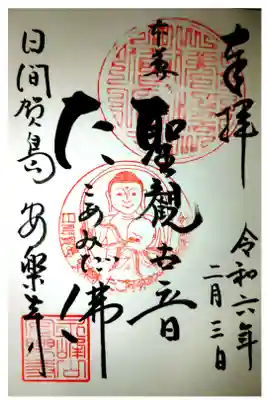 奉拝
令和六年
二月三日
本尊
聖観世音
たこあみだ佛
日間賀島
安楽寺